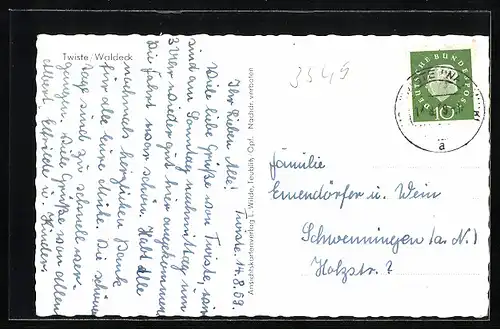 Twiste/Waldeck
Ihr Lieben Alle! Twiste, 14.8.60.
Viele liebe Grüße von Twiste, wir
sind am Sonntag nachmittag um
3 Uhr wieder gut hier angekommen.
Die Fahrt war schön. Habt alle
nochmals herzlichen Dank
für alle Eure Mühe. Die schönen
Tage sind zu schnell ver-
gangen. Viele Grüße von allen
Albert, Elfriede u. Kinder.
Ansichtskartenverlag E. Wilde, Teublitz, Opf. Nachdr. verboten
3545
DEUTSCHE BUNDESPOST
10
a
Familie
Emendörfer u. Wein
Schwenningen (a. N.)
Holzstr. ?